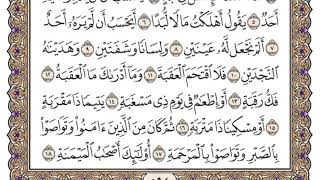 أَحَدٌ ٥ يَقُولُ أَهْلَكْتُ مَالًا لُّبَدًا ٦ أَيَحْسَبُ أَن لَّمْ يَرَهُۥٓ أَحَدٌ
٧ أَلَمْ نَجْعَل لَّهُۥ عَيْنَيْنِ ٨ وَلِسَانًا وَشَفَتَيْنِ ٩ وَهَدَيْنَٰهُ
ٱلنَّجْدَيْنِ ١٠ فَلَا ٱقْتَحَمَ ٱلْعَقَبَةَ ١١ وَمَآ أَدْرَىٰكَ مَا ٱلْعَقَبَةُ ١٢
فَكُّ رَقَبَةٍ ١٣ أَوْ إِطْعَٰمٌ فِى يَوْمٍ ذِى مَسْغَبَةٍ ١٤ يَتِيمًا ذَا مَقْرَبَةٍ
١٥ أَوْ مِسْكِينًا ذَا مَتْرَبَةٍ ١٦ ثُمَّ كَانَ مِنَ ٱلَّذِينَ ءَامَنُوا۟ وَتَوَاصَوْا۟
بِٱلصَّبْرِ وَتَوَاصَوْا۟ بِٱلْمَرْحَمَةِ ١٧ أُو۟لَٰٓئِكَ أَصْحَٰبُ ٱلْمَيْمَنَةِ ١٨